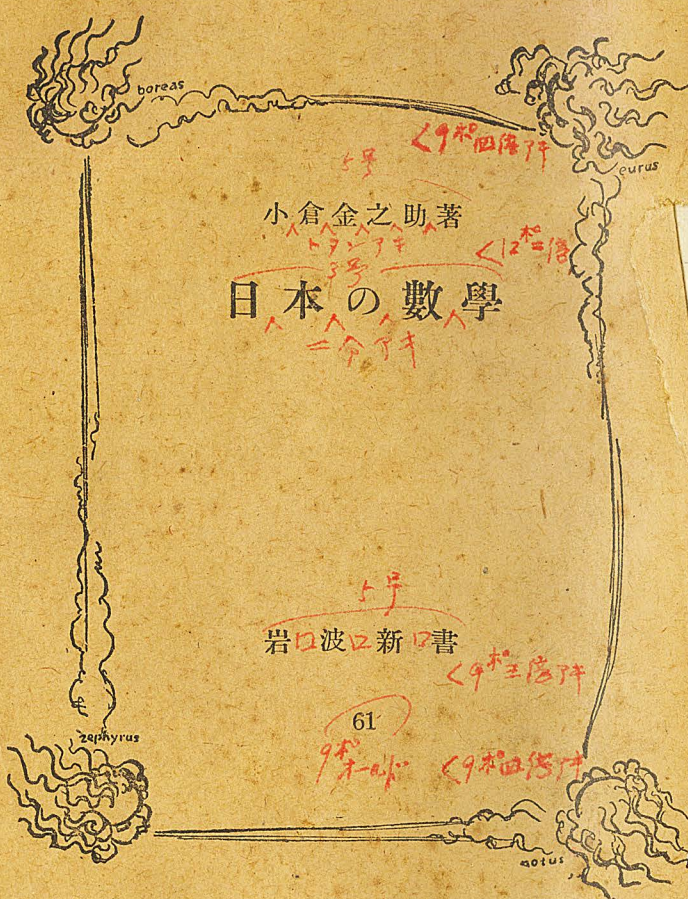 boreas
eurus
く9ポ四倍アキ
5号
小倉金之助著
く12ポ二倍
5号
日本の數學
二分アキ
5号
岩口波口新口書
く9ポ三倍アキ
61
9ポ
オールド
く9ポ四倍アキ
zephyrus
notus